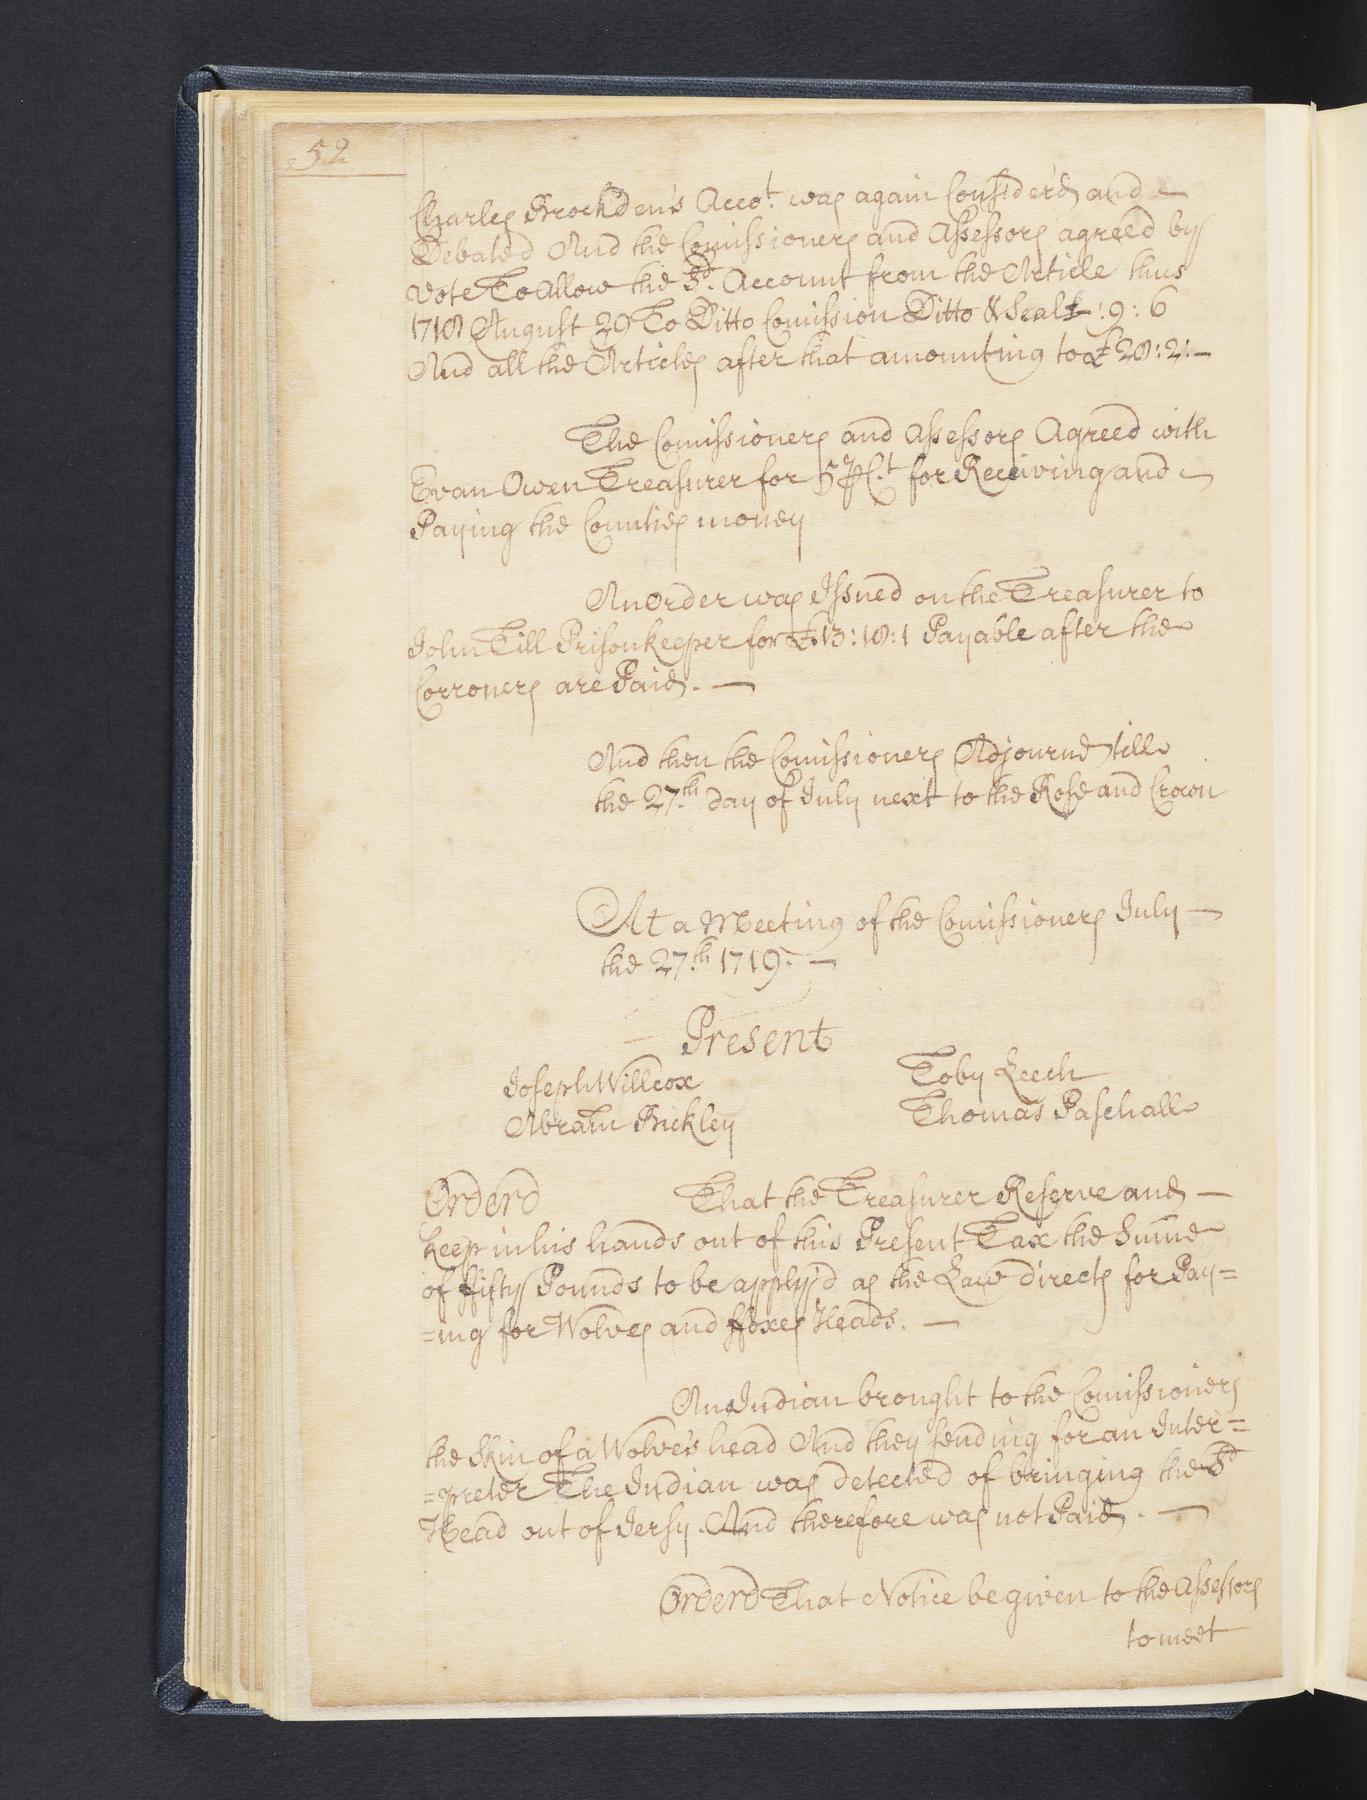 52
Charles Brockden's Acco.t was again Consider'd and
Debated And the Comissioners and Assessors agreed by
Vote To Allow the Sd. Account from the Article thus
1718 August 29 To Ditto Comission Ditto & Seal £ : 9 : 6
And all the Articles after that amounting to £ 28 : 2 : —
The Comissioners and Assessors Agreed with
Evan Owen Treasurer for 5 ⅌ C.t for Receiving and
Paying the Counties money
An Order was Issued on the Treasurer to
John Till Prison keeper for £ 13 : 18 : 1 Payable after the
Corroners are Paid. —
And then the Comissioners Adjournd till
the 27.th day of July next to the Rose and Crown
At a Meeting of the Comissioners July —
the 27.th 1719. —
Present
Joseph Willcox
Toby Leech
Abram Bickley
Thomas Paschall
Orderd That the Treasurer Reserve and —
keep in his hands out of this Present Tax the Summe
of ffifty Pounds to be apply'd as the Law directs for Pay=
=ing for Wolves and ffoxes Heads. —
An Indian brought to the Comissioners
the Skin of a Wolve's head And they sending for an Inter=
=preter The Indian was detected of bringing the Sd
Head out of Jersy. And therefore was not Paid. —
Orderd That Notice be given to the Assessors
to meet